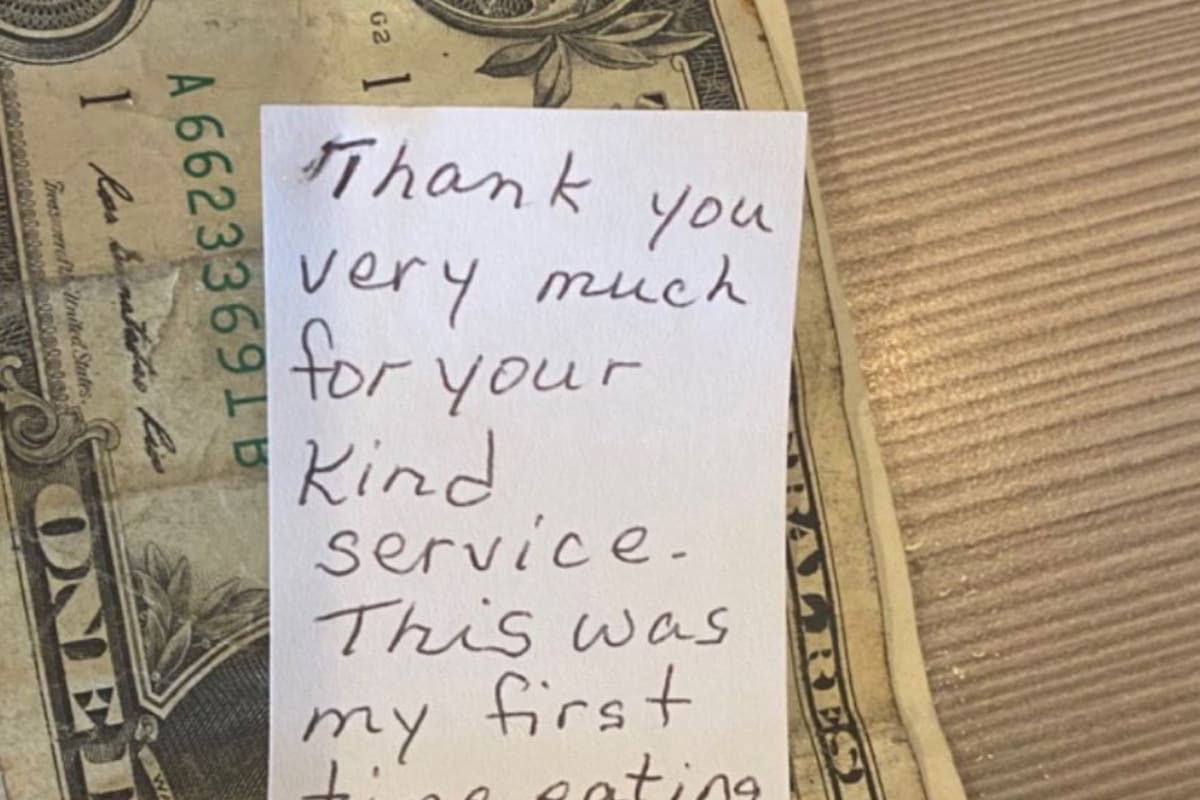 Thank you
very much
for your
Kind
service.
This was
my first
time eating
A66233691B
G2
1
1
Treasurer of the United States.
ONE